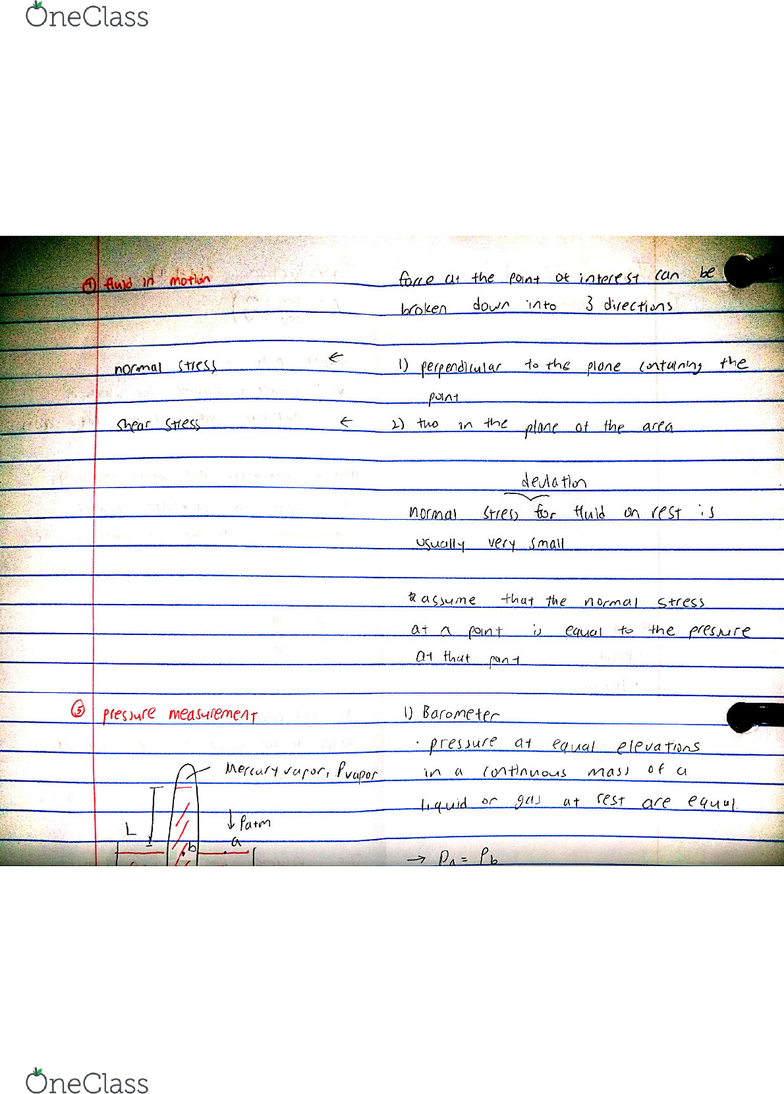 OneClass
④ fluid in motion
force at the point of interest can be
broken down into 3 directions
normal stress ← 1) perpendicular to the plane containing the
point
shear stress ← 2) two in the plane of the area
deviation
normal stress for fluid on rest is
usually very small
* assume that the normal stress
at a point is equal to the pressure
at that point
⑤ pressure measurement
1) Barometer
· pressure at equal elevations
in a continuous mass of a
liquid or gas at rest are equal
→ Pa = Pb
Mercury vapor, Pvapor
L
↓ Patm
a
b
OneClass